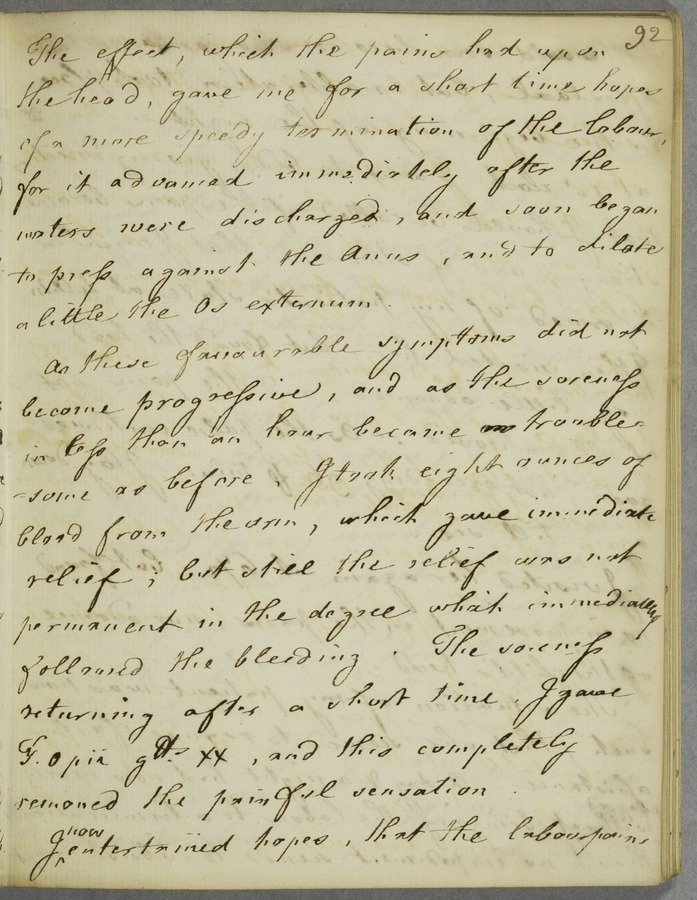 92
The effect, which the pains had upon
the head, gave me for a short time hopes
of a more speedy termination of the labour,
for it advanced immediately after the
waters were discharged, and soon began
to press against the Anus, and to dilate
a little the Os externum.
As these favourable symptoms did not
become progressive, and as the soreness
in less than an hour became as trouble-
-some as before, I took eight ounces of
blood from the arm, which gave immediate
relief; but still the relief was not
permanent in the degree which immediately
followed the bleeding. The soreness
returning after a short time, I gave
T. opii gtts xx, and this completely
removed the painful sensation.
I now entertained hopes, that the labour pains